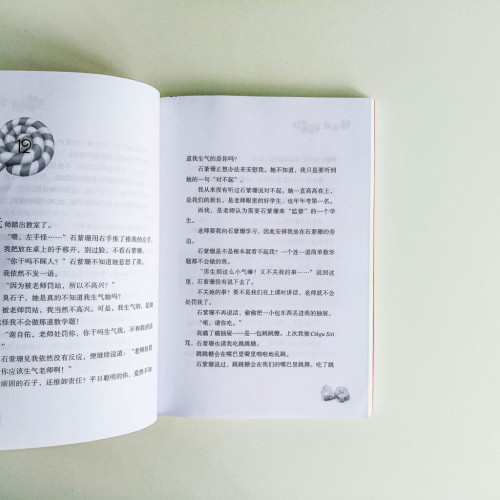 12
师踏出教室了。
“喂，左手怪……”石紫珊用右手推了推我的左手，
我把放在桌上的手移开，别过脸，不看石紫珊。
“你干吗不睬人？”石紫珊不知道她惹怒了我。
我依然不发一语。
“因为被老师罚站，所以不高兴？”
臭石子，她是真的不知道我生气她吗？
被老师罚站，我当然不高兴。可是，我生气的，是你
怪我不会做那道数学题！
“谢自佑，老师处罚你，你干吗生气我，不和我讲话
石紫珊见我依然没有反应，便继续说道：“老师处罚
你应该生气老师啊！”
顽固的石子，还推卸责任？平日聪明的你，竟然不知
道我生气的是你吗？
石紫珊正想办法来安慰我。她不知道，我只是要听到
她的一句“对不起”。
我从来没有听过石紫珊说对不起。她一直高高在上，
是我们的班长，是老师眼里的好学生，也年年考第一名。
而我，是老师认为需要石紫珊来“监督”的一个学
生。
老师要我向石紫珊学习，因此安排我坐在石紫珊的旁
边。
石紫珊是不是根本就看不起我？一个连一道简单数学
题都不会做的我。
“男生别这么小气嘛！又不关我的事……”说到这
里，石紫珊没有说下去了。
不关她的事？要不是我们在上课时讲话，老师就不会
处罚我了。
石紫珊不再说话，偷偷把一小包东西丢进我的抽屉。
“喏，请你吃。”
我瞄了瞄抽屉——是一包跳跳糖。上次我被 Cikgu Siti
骂，石紫珊也请我吃跳跳糖。
跳跳糖会在嘴巴里噼里啪啦地乱跳。
石紫珊说过，跳跳糖会在我们的嘴巴里跳舞。吃了跳